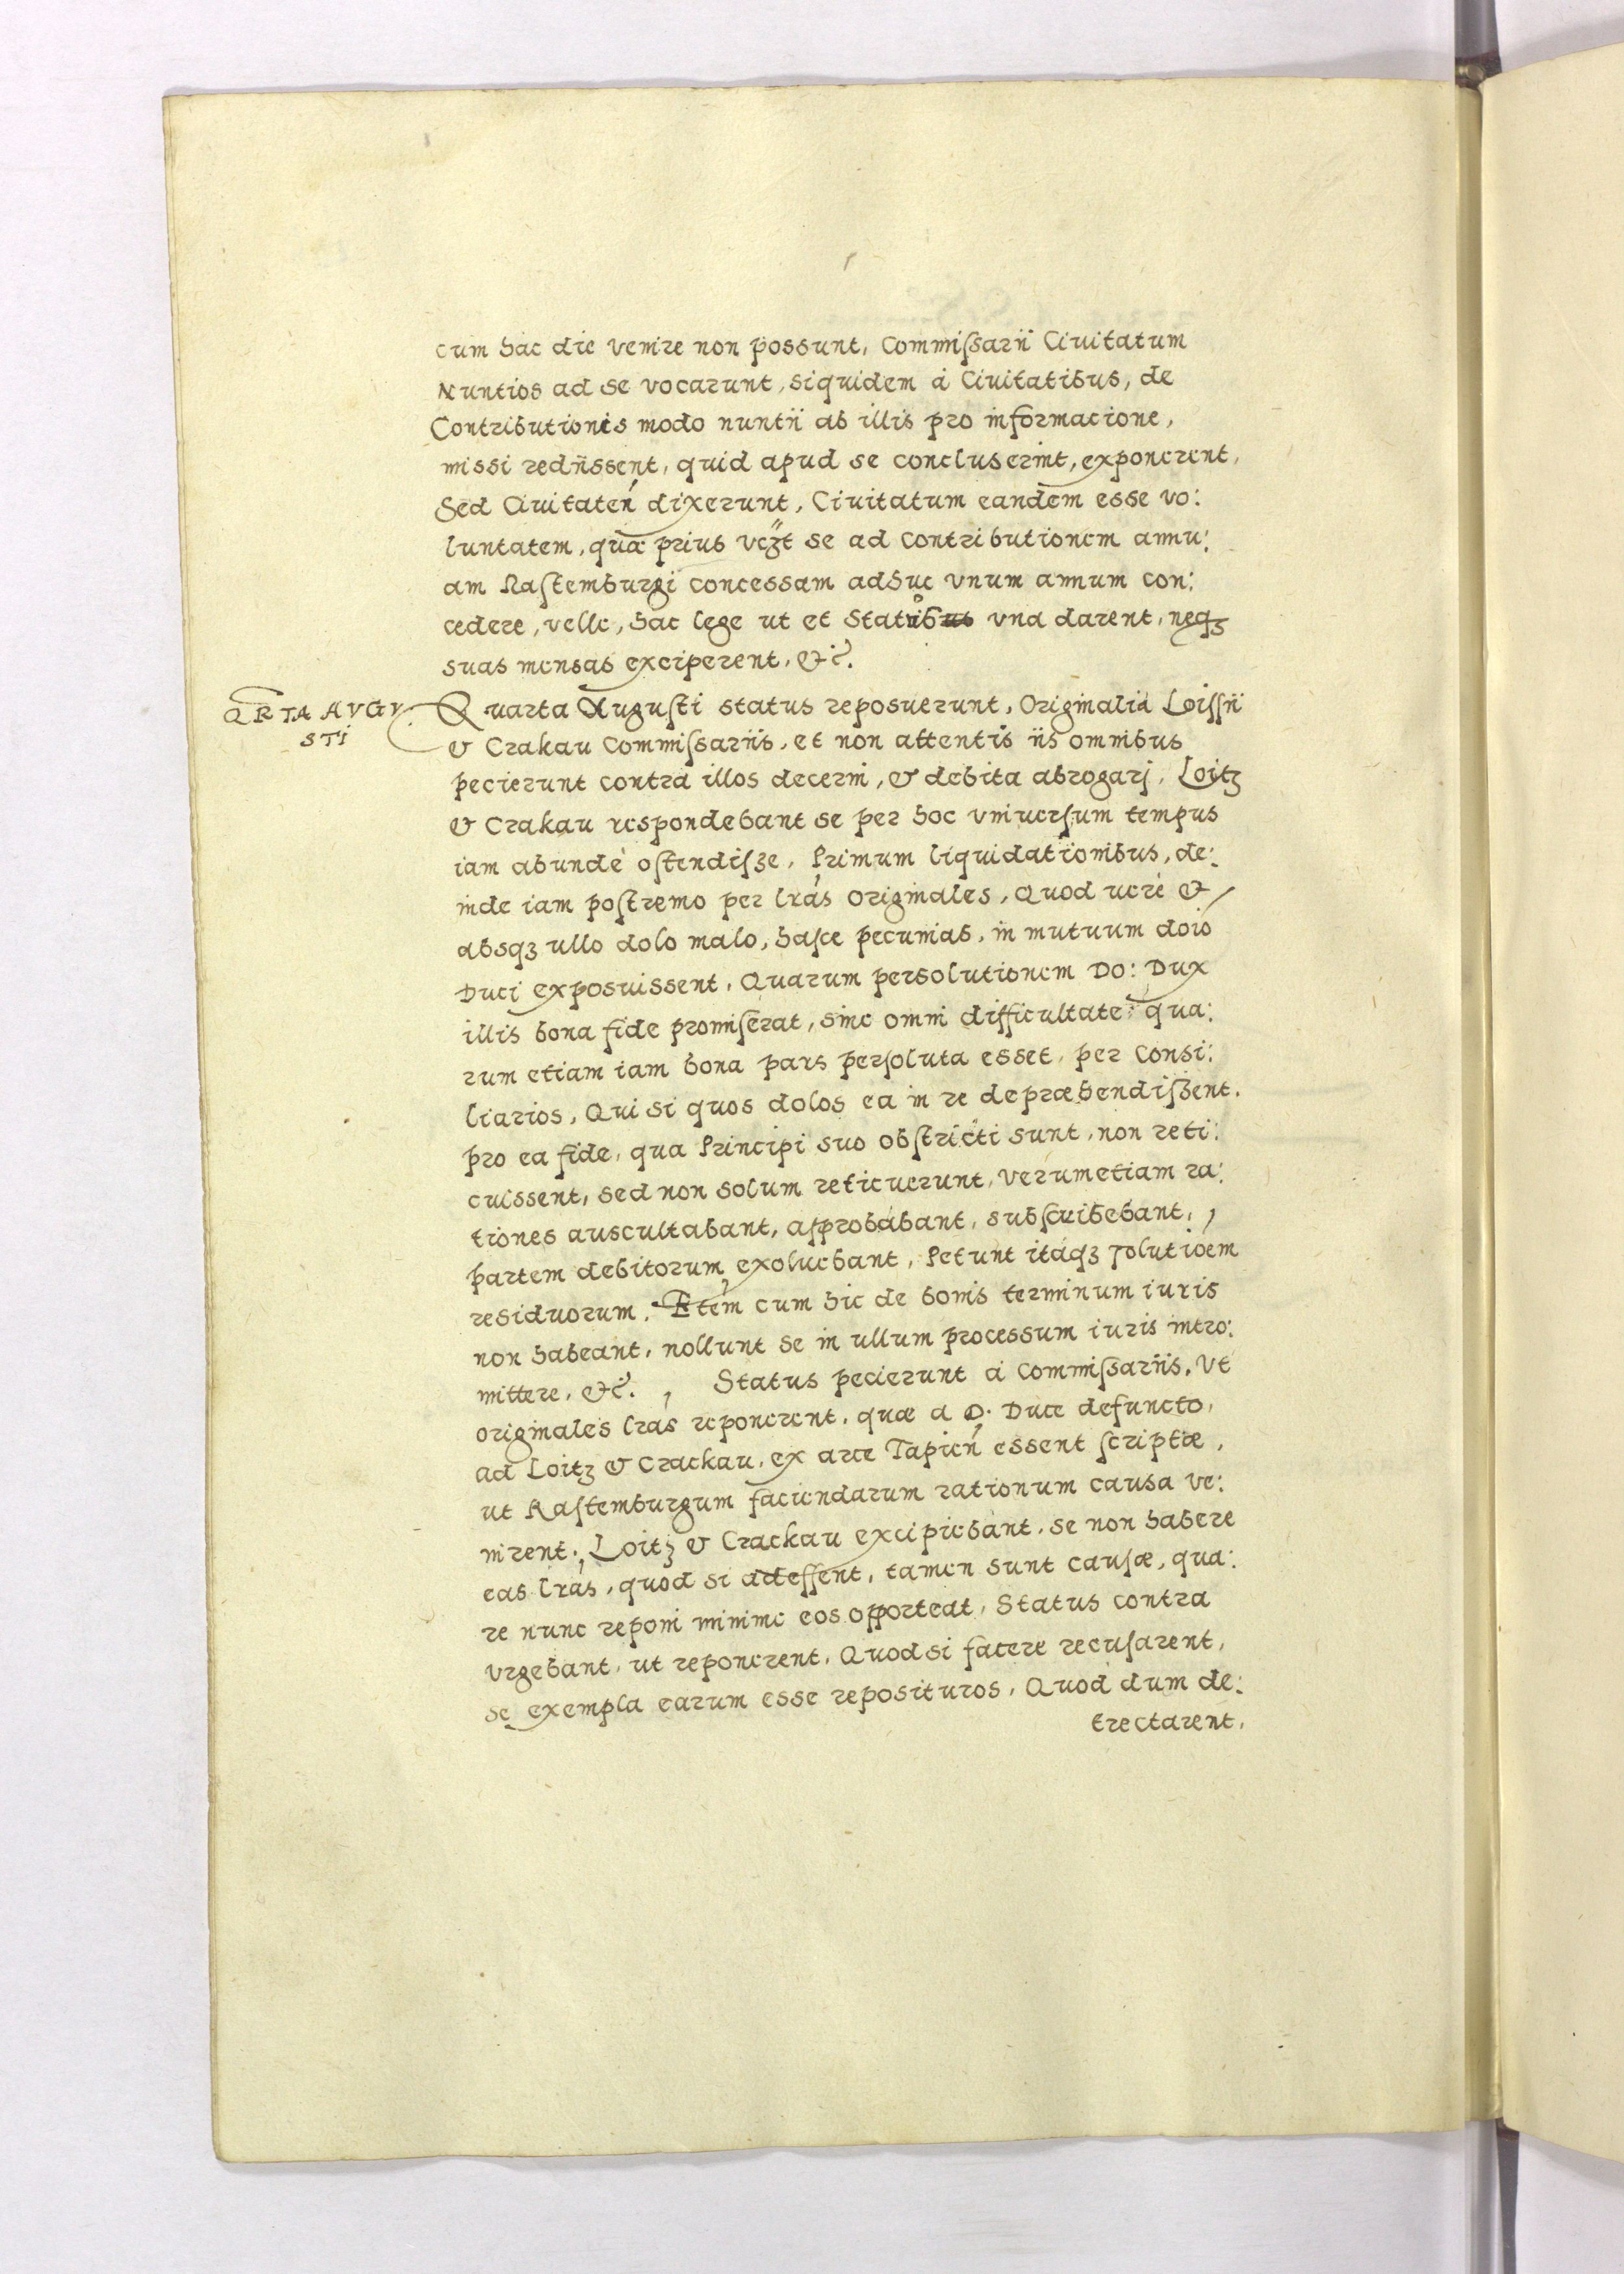 cum hac die venire non possunt, Commissarii Ciuitatum
Nuntios ad se vocarunt, siquidem à Ciuitatibus, de
Contributionis modo nuntii ab illis pro informacione,
missi rediissent, quid apud se concluserint, exponerent,
Sed Ciuitaten̄ dixerunt, Ciuitatum eandem esse vo:
luntatem, quæ prius vēzt se ad contributionem annu:
am Rastemburgi concessam adhuc vnum annum con:
cedere, velle, hac lege ut et Status vna darent, neqȝ
suas mensas exciperent, etc̃.
QRTA AVGV
STI
Quarta Augusti status reposuerunt, Originalia Loissii
& Crakau Commissariis, et non attentis iis omnibus
pecierunt contra illos decerni, & debita abrogarj, Loitz
& Crakau respondebant se per hoc vniuersum tempus
iam abundè ostendisse, Primum liquidationibus, de:
inde iam postremo per lrás originales, Quod uerè &
absqȝ ullo dolo malo, hasce pecunias, in mutuum dōio
Duci exposuissent, Quarum persolutionem Do: Dux
illis bona fide promiserat, sine omni difficultate: qua:
rum etiam iam bona pars persoluta esset, per Consi:
liarios, Qui si quos dolos ea in re depræhendissent.
pro ea fide, qua Principi suo obstricti sunt, non reti:
cuissent, sed non solum reticuerunt, verumetiam ra:
tiones auscultabant, approbabant, subscribebant,,
partem debitorum exoluebant, Petunt itaqȝ solutiōem
residuorum, Etem̄ cum hic de bonis terminum iuris
non habeant, nollunt se in ullum processum iuris intro:
mittere, etc̃. , Status pecierunt à Commissariis, Vt
originales lrás reponerent, quæ a D. Duce defuncto,
ad Loitz & Crackau, ex arce Tapien̄ essent scriptæ,
ut Rastemburgum faciundarum rationum causa ve:
nirent., Loitz & Crackau excipiebant, se non habere
eas lrás, quod si adessent, tamen sunt causæ, qua:
re nunc reponi minime eos opporteat, Status contra
vrgebant, ut reponerent, Quod si facere recusarent,
se exempla earum esse reposituros, Quod dum de:
trectarent,